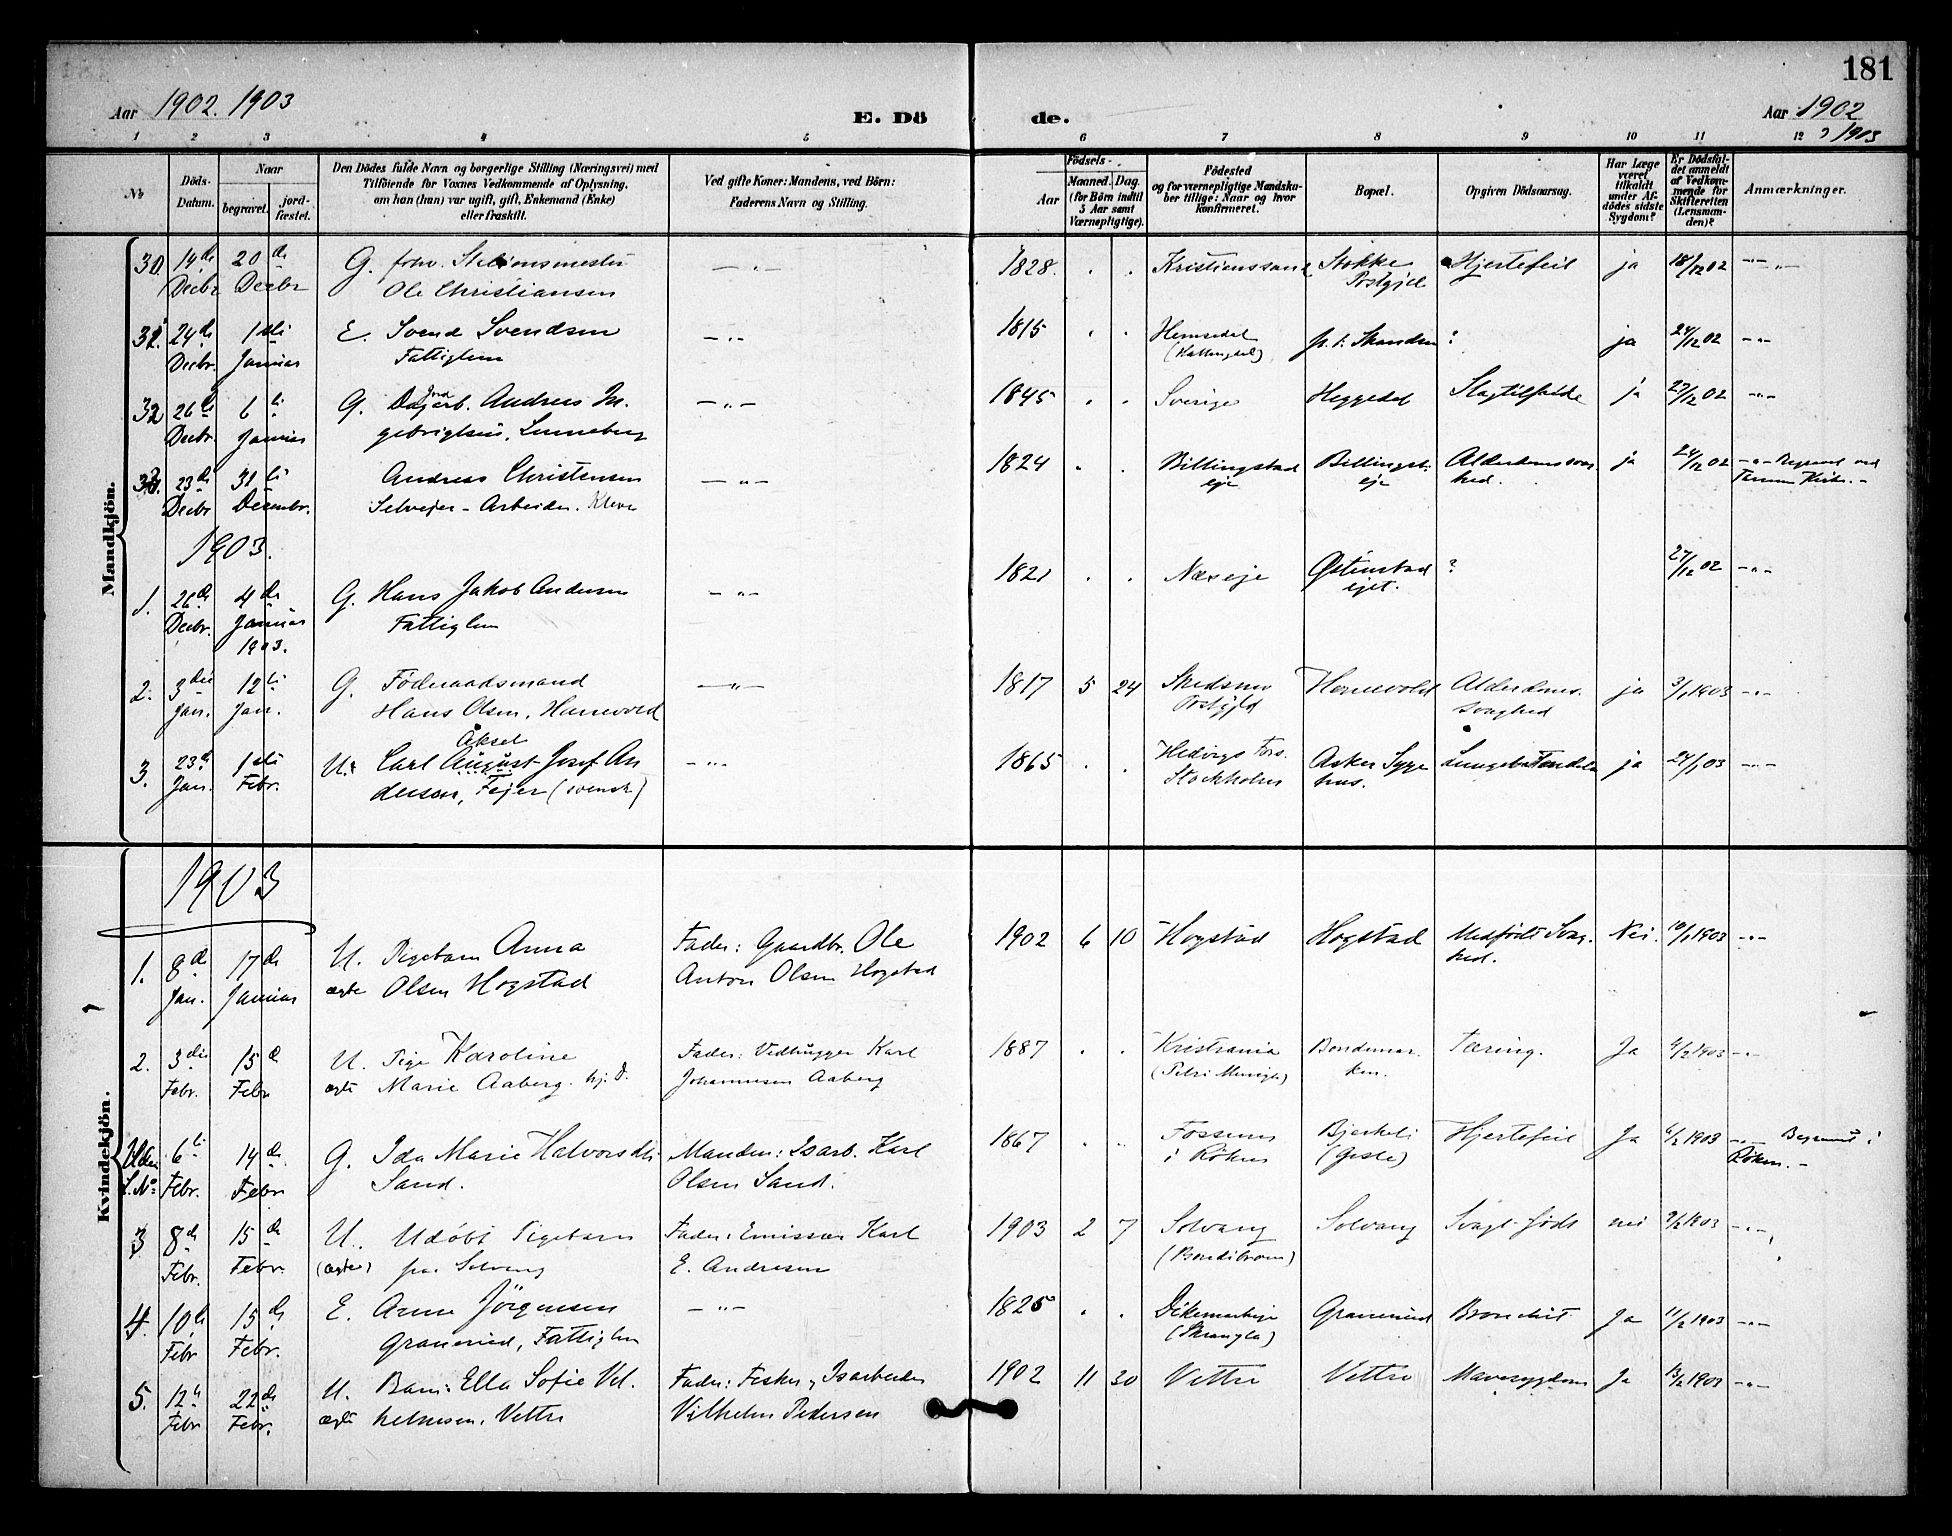 181
Aar 1902. 1903
E. Dö
de.
Aar 1902
1903
1 2 3 4 5 6 7 8 9 10 11 12
No
Döds-Datum.
Naar
begravet.
jordfæstet.
Den Dödes fulde Navn og borgerlige Stilling (Næringsvei) med
Tilföiende for Voxnes Vedkommende af Oplysning,
om han (hun) var ugift, gift, Enkemand (Enke)
eller fraskilt.
Ved gifte Koner: Mandens, ved Börn:
Faderens Navn og Stilling.
Födsels-
Aar
Maaned. Dag.
(for Börn indtil
5 Aar samt
Værnepligtige).
Födested
og for værnepligtige Mandskaber tillige: Naar og hvor
konfirmeret.
Bopæl.
Opgiven Dödsaarsag.
Har Læge
været
tilkaldt
under Afdödes sidste
Sygdom?
Er Dödsfaldet anmeldt
af Vedkommende for
Skifteretten
(Lensmanden)?
Anmærkninger.
Mandkjön.
30. 14de 20de G. forhv. Stationsmester 1828. Kristianssand Stokke Hjertefeil ja 18/12 02
Decbr Decbr Ole Christiansen Prstgjeld
31. 24de 1ste E. Svend Svendsen 1815 Hemsedal p. t. ? ja 24/12 02
Decbr. Januar Fattiglem (Hallingdal)
32 26de 6te G. Andreas In- 1845 Sverige Heggedal Slagtilfælde ja 27/12 02
Decbr. Januar gebrigtsen,
33. 23de 31te Andreas Christensen 1824 Billingstad Billingst. Alderdomssvag- ja 24/12 02 Begravet ved
Decbr Decembr. Selveier-Arbeider. eje eje hed. Tanum Kirke.
1903.
1. 26de 4de G. Hans Jakob Andersen 1821 Næseje Østenstad ? 27/12 02
Decbr. Januar Fattiglem ejet.
1903.
2. 3die 12te G. Föderaadsmand 1817 5 24 Skedsmo Alderdoms- ja 3/1 1903
Jan. Jan. Hans Olsen, Prstgjld svaghed
Aksel
3. 23de 1ste U. Carl August Josef An- 1865 Hedvigs Fors. Asker Syge- ja 24/1 03
Jan. Febr. dersen, Fejer (svensk) Stockholm hus.
Kvindekjön.
1903
1. 8de 17de U. Pigebarn Anna Fader: Gaardbr. Ole 1902 6 10 Hogstad Hogstad Medfödt Svag- Nei. 10/1 1903
Jan. Januar ægte Olsen Hogstad Anton Olsen Hogstad hed.
2. 3die 15de U. Pige Karoline Fader: Vedhugger Karl 1887 Kristiania Bondemar- Tæring. Ja 4/2 1903
Febr. Febr ægte Marie Aaberg. hj. d. Johannesen Aaberg (Petri Menigh.) ken.
Uden 6te 14de G. Ida Marie Halvorsdtr. Manden: Isarb. Karl 1867 Fossum Bjerkeli Hjertefeil Ja 6/2 1903 Begravet i
L. No Febr. Febr. Sand. Olsen Sand. i Röken Röken.
3 8de 15de U. Udöbt Pigebarn Fader: Emissær Karl 1903 2 7 Solvang Solvang Svagt födt nei 9/2 1903
Febr. Febr. (ægte) fra Solvang E. Andresen
4. 10de 15de E. Anne Jörgensen 1825 Dikemarkeje Granerud Bronchit Ja 11/2 1903
Febr Febr. Granerud, Fattiglem
5. 12te 22de U. Barn: Ella Sofie Vil- Fader: Fisker, Isarbeider 1902 11 30 Vettre Vettre Mavesygdom Ja 13/2 1903
Febr Febr. ægte helmsen, Vettre Vilhelm Pedersen